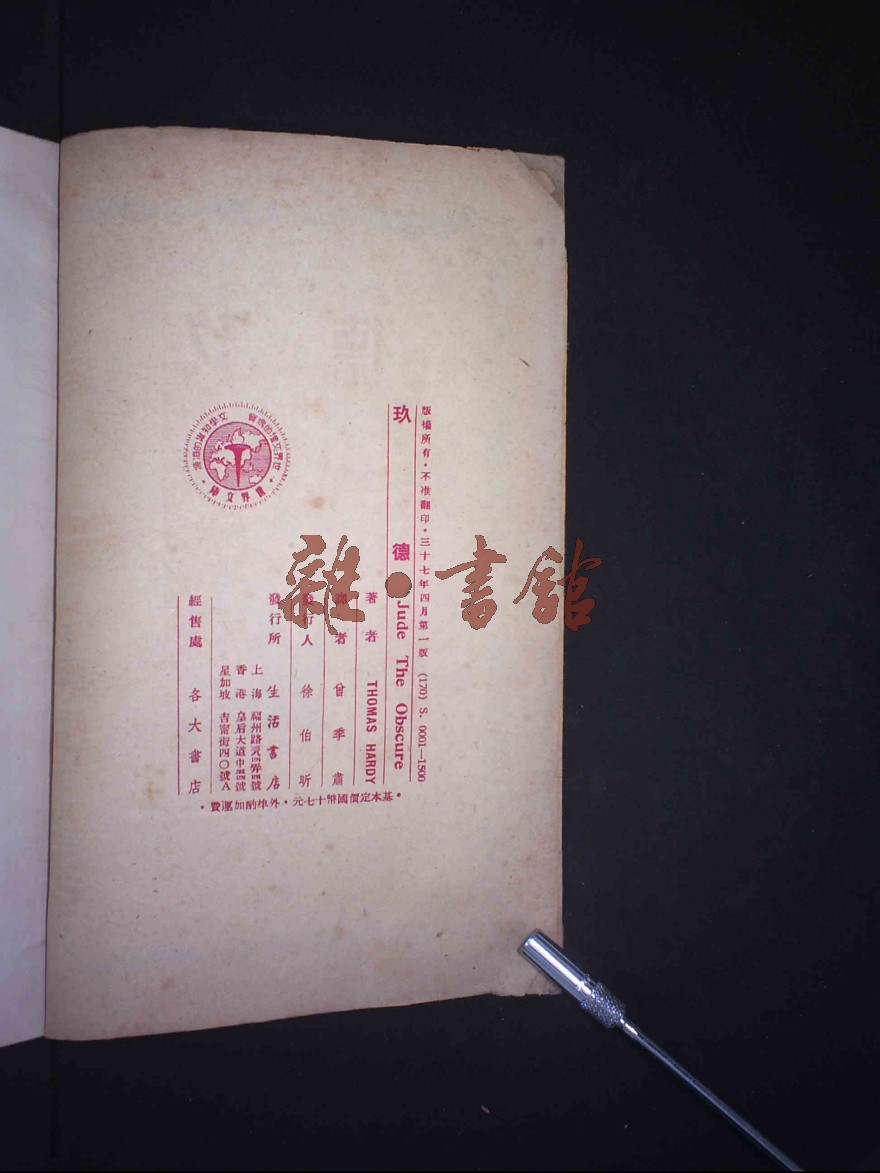 版權所有·不准翻印·三十七年四月第一版 (170) S. 0001—1500
玖德 Jude The Obscure
著者 THOMAS HARDY
譯者 曾季肅
發行人 徐伯昕
發行所 生活書店
上海 福州路
香港 皇后大道中
星加坡 吉甯街四〇號A
經售處 各大書店
·基本定價國幣十七元·外埠酌加運費·
世界文庫
雜·書館